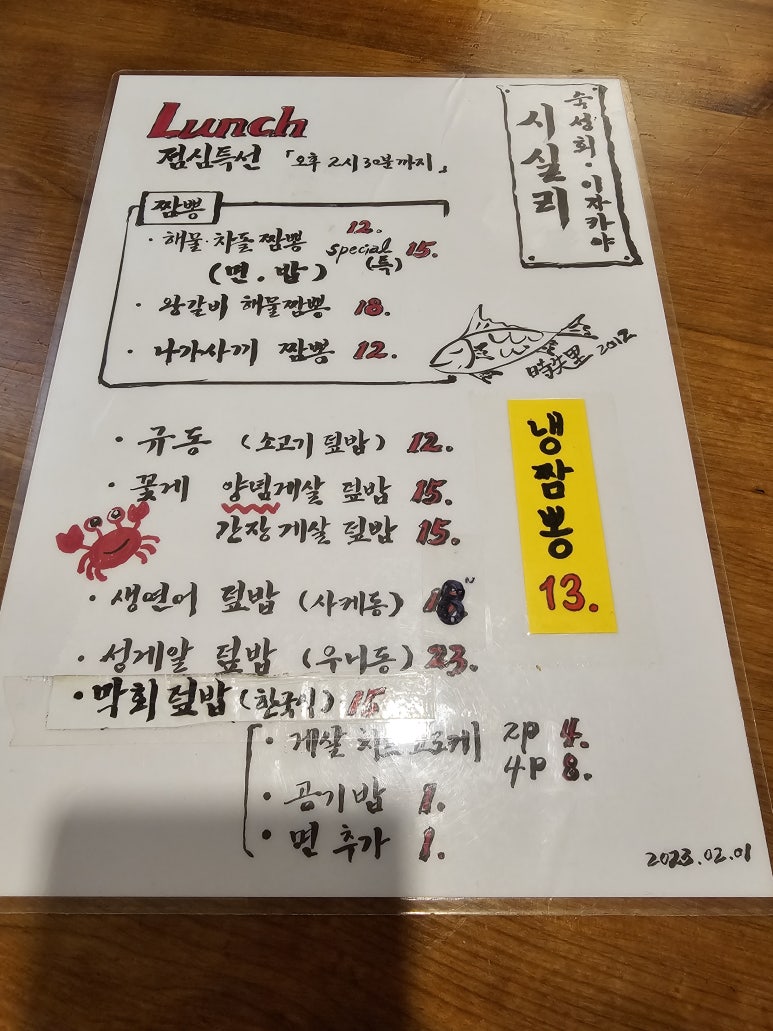 Lunch
점심특선 「오후 2시 30분까지」
숙성회·이자카야
시실리
짬뽕
·해물·차돌 짬뽕 12.
special (특) 15.
(면.밥)
·왕갈비 해물짬뽕 18.
·나가사끼 짬뽕 12.
時失里 2012
·규동 (소고기 덮밥) 12.
·꽃게 양념게살 덮밥 15.
간장게살 덮밥 15.
냉짬뽕
13.
·생연어 덮밥 (사케동) 18
·성게알 덮밥 (우니동) 23.
·막회덮밥 (한국식) 15
·게살 치즈 고로케 2P 4.
4P 8.
·공기밥 1.
·면 추가 1.
2023.02.01